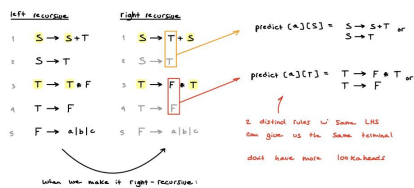 left recursive
1 S → S + T
2 S → T
3 T → T * F
4 T → F
5 F → a|b|c
right recursive
1 S → T + S
2 S → T
3 T → F * T
4 T → F
5 F → a|b|c
when we make it right-recursive:
predict [a][S] = S → S + T or
S → T
predict [a][T] = T → F * T or
T → F
2 distinct rules w same LHS
can give us the same terminal
dont have more lookaheads